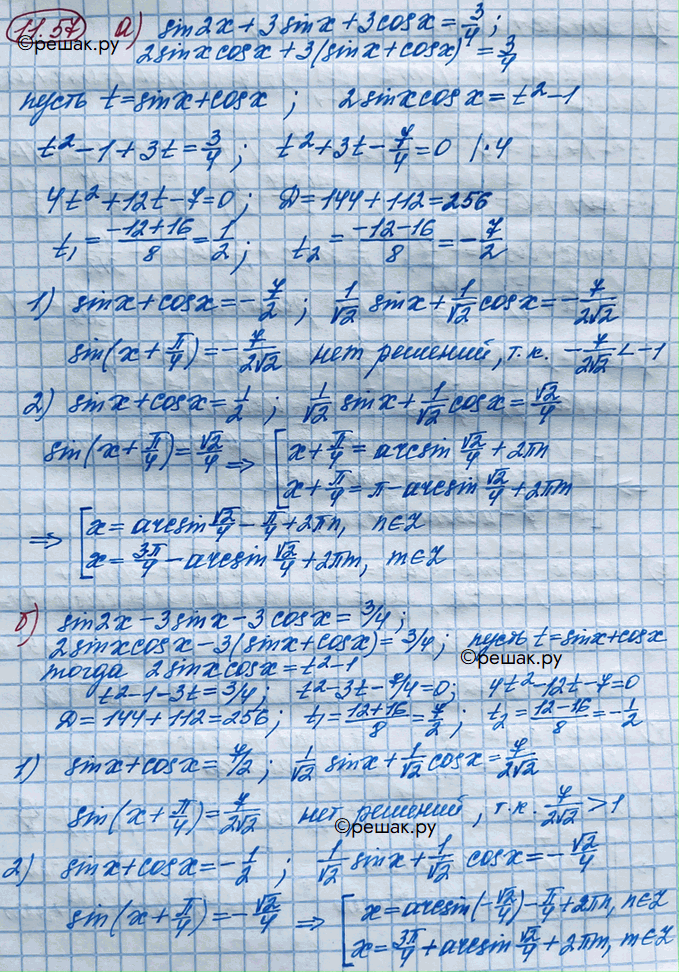 11.57 а) sin2x + 3sinx + 3cosx = 3/4;
©решак.ру
2sinxcosx + 3(sinx + cosx) = 3/4
пусть t = sinx + cosx ; 2sinxcosx = t² - 1
t² - 1 + 3t = 3/4 ; t² + 3t - 7/4 = 0 |·4
4t² + 12t - 7 = 0 ; D = 144 + 112 = 256
t₁ = (-12+16)/8 = 1/2 ; t₂ = (-12-16)/8 = -7/2
1) sinx + cosx = -7/2 ; 1/√2 sinx + 1/√2 cosx = -7/(2√2)
sin(x + π/4) = -7/(2√2) нет решений, т.к. -7/(2√2) < -1
2) sinx + cosx = 1/2 ; 1/√2 sinx + 1/√2 cosx = √2/4
sin(x + π/4) = √2/4 ⇒ [ x + π/4 = arcsin √2/4 + 2πn
x + π/4 = π - arcsin √2/4 + 2πm
⇒ [ x = arcsin √2/4 - π/4 + 2πn, n∈Z
x = 3π/4 - arcsin √2/4 + 2πm, m∈Z
б) sin2x - 3sinx - 3cosx = 3/4 ;
2sinxcosx - 3(sinx + cosx) = 3/4 ; пусть t = sinx + cosx
©решак.ру
тогда 2sinxcosx = t² - 1
t² - 1 - 3t = 3/4 ; t² - 3t - 7/4 = 0 ; 4t² - 12t - 7 = 0
D = 144 + 112 = 256 ; t₁ = (12+16)/8 = 7/2 ; t₂ = (12-16)/8 = -1/2
1) sinx + cosx = 7/2 ; 1/√2 sinx + 1/√2 cosx = 7/(2√2)
sin(x + π/4) = 7/(2√2) нет решений, т.к. 7/(2√2) > 1
©решак.ру
2) sinx + cosx = -1/2 ; 1/√2 sinx + 1/√2 cosx = -√2/4
sin(x + π/4) = -√2/4 ⇒ [ x = arcsin(-√2/4) - π/4 + 2πn, n∈Z
x = 3π/4 + arcsin √2/4 + 2πm, m∈Z